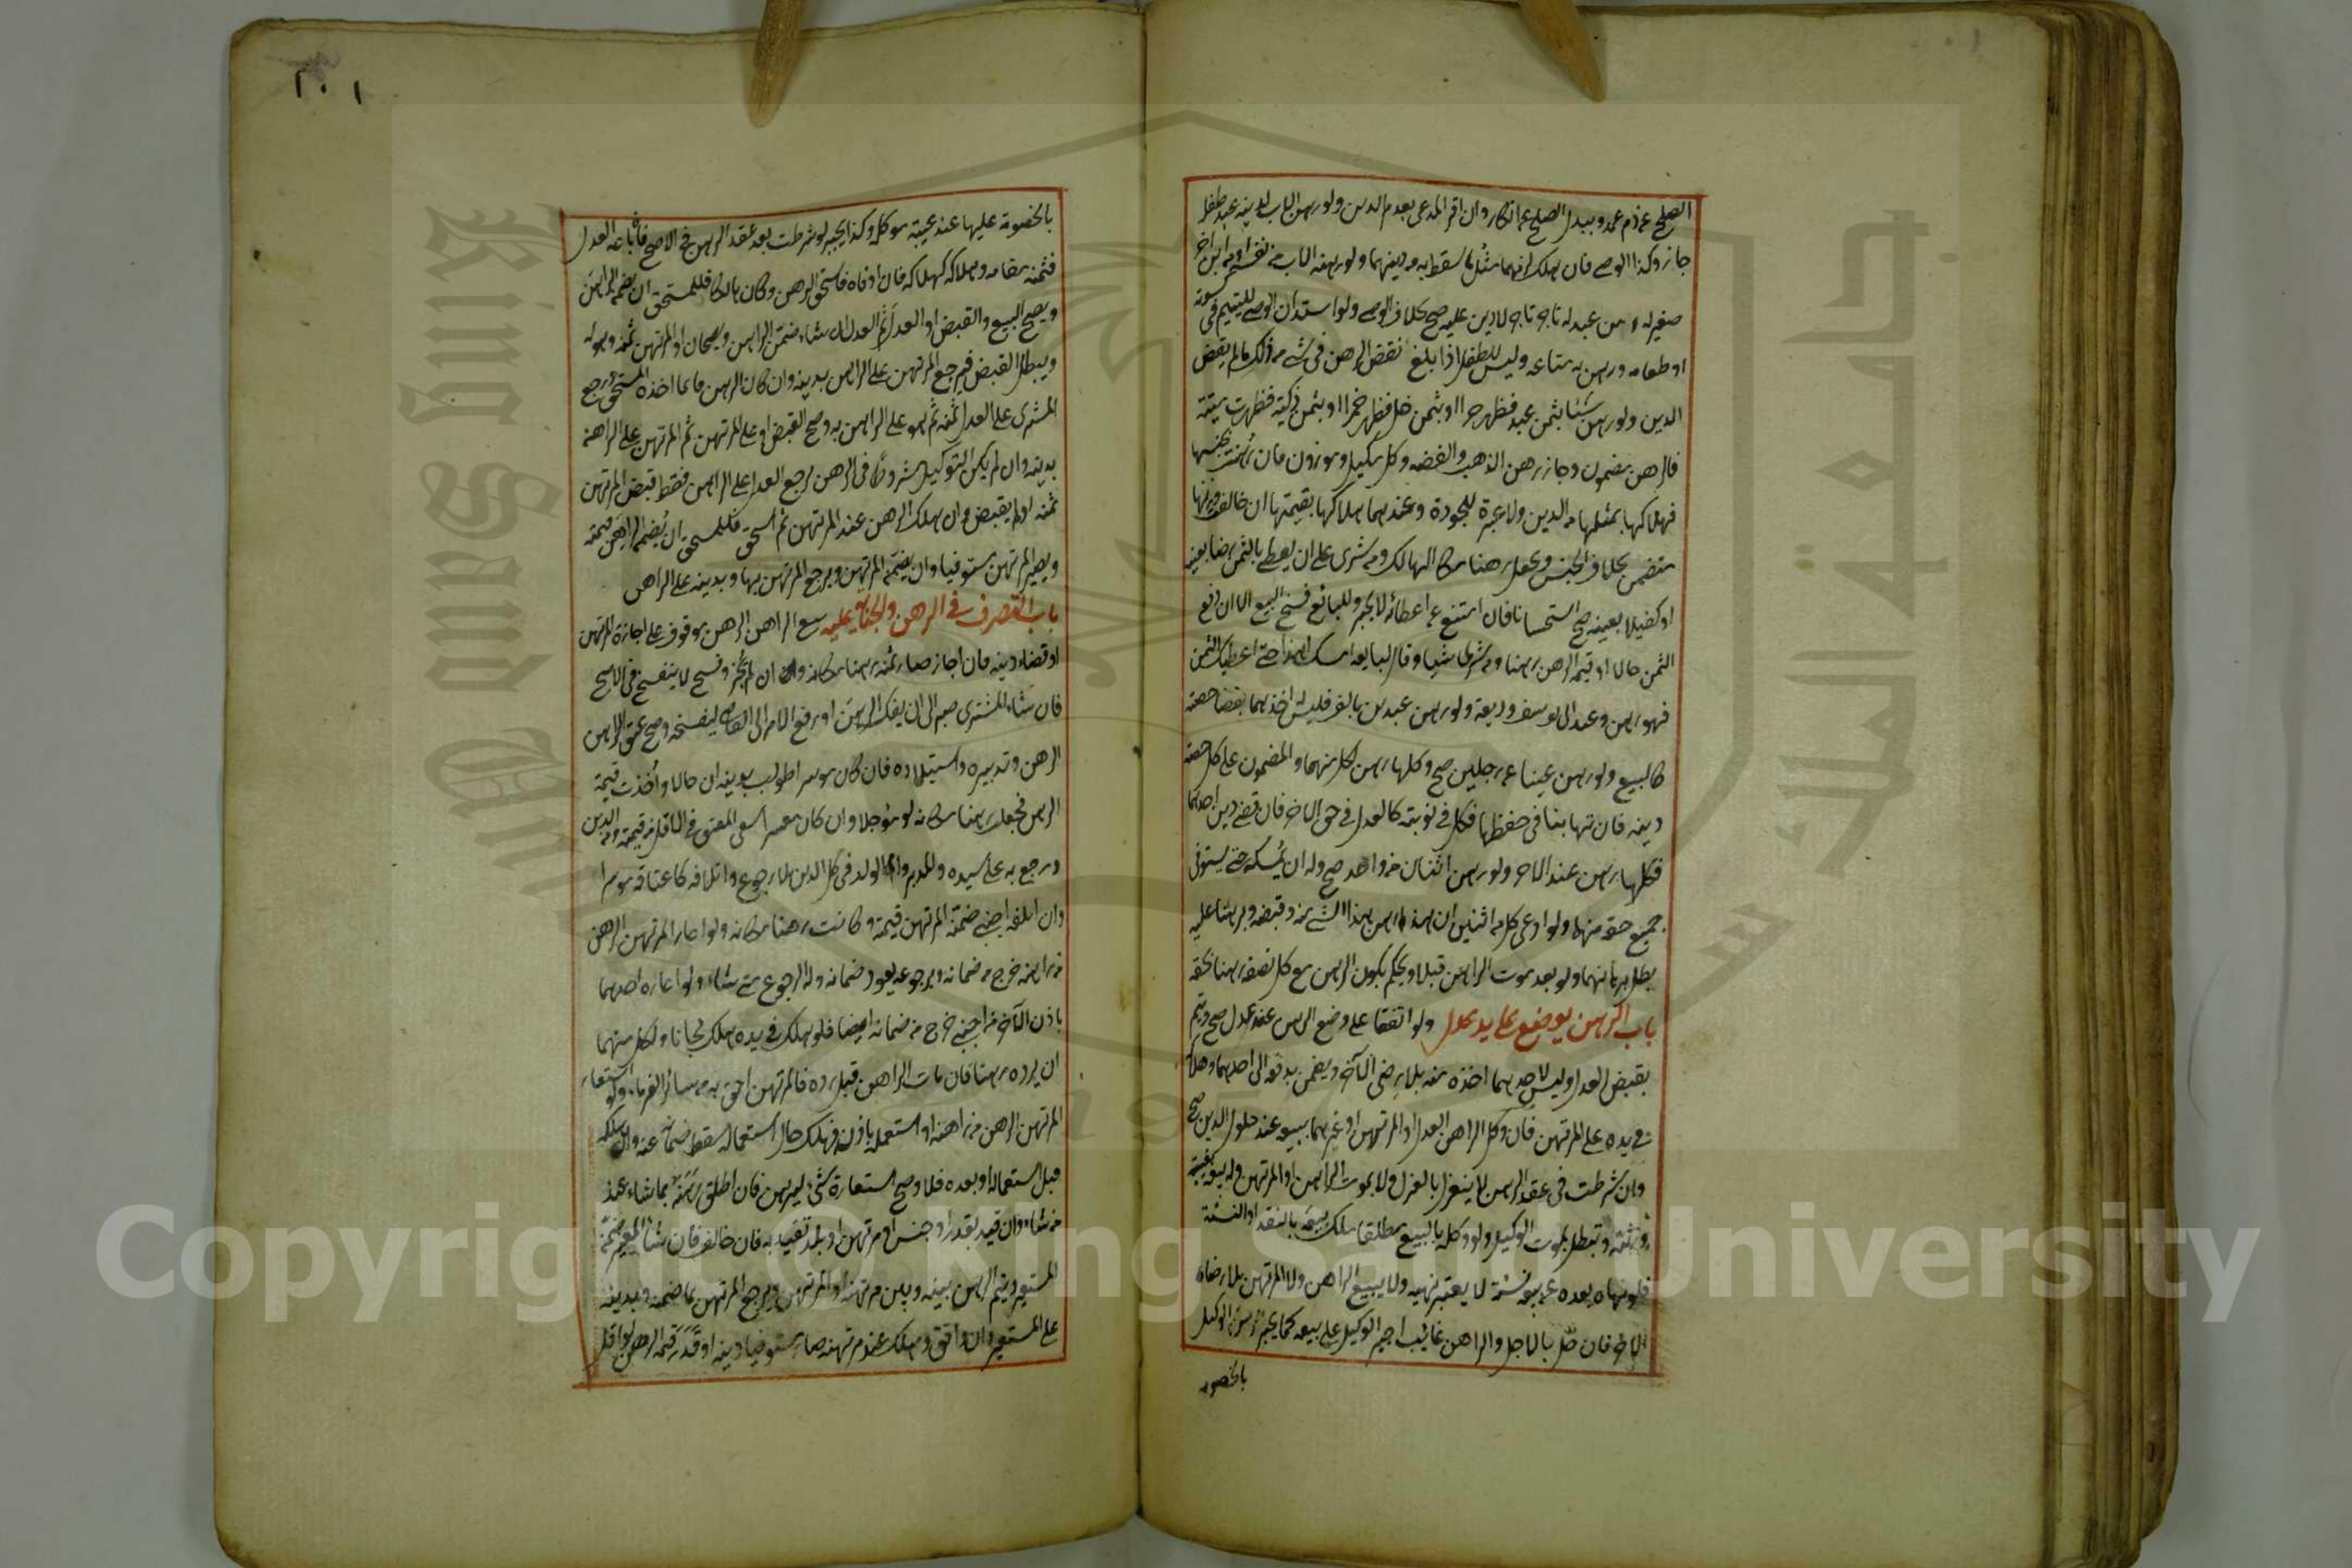 الصلح عن دم عمد وببدل الصلح عن انكار وان اقر المدعى بعدم الدين ولو رهن الاب لدينه عبد طفله
جاز وكذا الوصي فان هلك لزمهما مثل ما سقط به من دينهما ولو رهنه الاب من نفسه او من ابن اخر
صغير له او من عبد له تاجر لا دين عليه صح بخلاف الوصي ولو استدان الوصي لليتيم في كسوته
او طعامه ورهن به متاعه وليس للطفل اذا بلغ نقض الرهن في شئ من ذلك ما لم يقض
الدين ولو رهن شيئا بثمن عبد فظهر حرا او بثمن خل فظهر خمرا او بثمن ذكية فظهرت ميتة
فالرهن مضمون وجاز رهن الذهب والفضة وكل مكيل وموزون فان رهنت بجنسها
فهلاكها بمثلها من الدين ولا عبرة للجودة وعندهما هلاكها بقيمتها ان خالف وزنها
فتضمن بخلاف الجنس وتجعل رهنا مكان الهالك ومن شرى على ان يعطي بالثمن رهنا بعينه
او كفيلا بعينه صح استحسانا فان امتنع عن اعطائه لا يجبر وللبائع فسخ البيع الا ان دفع
الثمن حالا او قيمة الرهن رهنا ومن شرى شيئا وقال لبايعه امسك هذا حتى اعطيك الثمن
فهو رهن وعند ابى يوسف وديعة ولو رهن عبدين بالف فليس له اخذ احدهما بقضاء حصته
كالبيع ولو رهن عينا عند رجلين صح وكلها رهن لكل منهما والمضمون على كل حصة
دينه فان تهايئا في حفظها فكل في نوبته كالعدل في حق الاخر فان قضي دين احدهما
فكلها رهن عند الاخر ولو رهن اثنان من واحد صح وله ان يمسكه حتى يستوفي
جميع حقه منهما ولو ادعى كل من اثنين ان هذا رهن هذا الشئ منه وقبضه وبرهنا عليه
بطل برهانهما ولو بعد موت الراهن قبلا ويحكم بكون الرهن مع كل نصفه رهنا بحقه
باب الرهن يوضع على يد عدل ولو اتفقا على وضع الرهن عند عدل صح ويتم
بقبض العدل وليس لاحدهما اخذه منه بلا رضى الآخر ويضمن بدفعه الى احدهما وهلاكه
في يده على المرتهن فان وكل الراهن العدل او المرتهن او غيرهما ببيعه عند حلول الدين صح
وان شرطت في عقد الرهن لا ينعزل بالعزل ولا بموت الراهن او المرتهن وله بيعه بغيبة
ورثته وتبطل بموت الوكيل ولو وكله بالبيع مطلقا ملك بيعه بالنقد او النسئة
فلو نهاه بعده عن بيعه نسئة لا يعتبر نهيه ولا يبيع الراهن ولا المرتهن بلا رضاء
الاخر فان حل الاجل والراهن غائب اجبر الوكيل على بيعه كما يجبر الوكيل
بالخصومة
١٠١
بالخصومة عليها عند غيبة موكله وكذا يجبر لو شرطت بعد عقد الرهن في الاصح فان باعه العدل
فثمنه مقامه وهلاكه كهلاكه فان اوفاه فاستحق الرهن وكان هالكا فللمستحق ان يضمن الراهن
ويصح البيع والقبض او العدل ثم العدل ان شاء ضمن الراهن ويصحان او المرتهن ثمنه وهو له
ويبطل القبض فيرجع المرتهن على الراهن بدينه وان كان الرهن قائما اخذه المستحق ورجع
المشترى على العدل بثمنه ثم هو على الراهن به وصح القبض او على المرتهن ثم المرتهن على الراهن
بدينه وان لم يكن التوكيل مشروطا في الرهن يرجع العدل على الراهن فقط قبض المرتهن
ثمنه او لم يقبض وان هلك الرهن عند المرتهن ثم استحق فللمستحق ان يضمن الراهن قيمته
ويصير المرتهن مستوفيا وان يضمن المرتهن ويرجع المرتهن بها وبدينه على الراهن
باب التصرف في الرهن والجناية عليه بيع الراهن الرهن موقوف على اجازة المرتهن
او قضاء دينه فان اجاز صار ثمنه رهنا مكانه وان لم يجز وفسخ لا ينفسخ في الاصح
فان شاء المشترى صبر الى ان يفك الرهن او رفع الامر الى القاضي ليفسخه وصح عتق الراهن
الرهن وتدبيره واستيلاده فان كان موسرا طولب بدينه ان حالا وأخذت قيمة
الرهن فجعلت رهنا مكانه لو مؤجلا وان كان معسرا سعى المعتق في الاقل من قيمته ومن الدين
ورجع به على سيده والمدبر وام الولد في كل الدين بلا رجوع واتلافه كاعتاقه موسرا
وان اتلفه اجنبي ضمنه المرتهن قيمته وكانت رهنا مكانه ولو اعار المرتهن الرهن
من راهنه خرج من ضمانه وبرجوعه يعود ضمانه وله الرجوع متى شاء ولو اعاره احدهما
باذن الآخر من اجنبي خرج من ضمانه ايضا فلو هلك في يده هلك مجانا ولكل منهما
ان يرده رهنا فان مات الراهن قبل رده فالمرتهن احق به من سائر الغرماء ولو استعار
المرتهن الرهن من راهنه او استعمله باذنه فهلك حال استعماله سقط ضمانه عنه وان هلك
قبل استعماله او بعده فلا وصح استعارة شئ ليرهن فان اطلق رهنه بما شاء عند
من شاء وان قيد بقدر او جنس او مرتهن او بلد تقيد به فان خالف فان شاء المعير ضمن
المستعير ويتم الرهن بينه وبين مرتهنه او المرتهن ويرجع المرتهن بما ضمنه وبدينه
على المستعير وان وافق وهلك عند مرتهنه صار مستوفيا دينه او قدر قيمة الرهن لو اقل
Copyright © King Saud University
King Saud University
جامعة الملك سعود